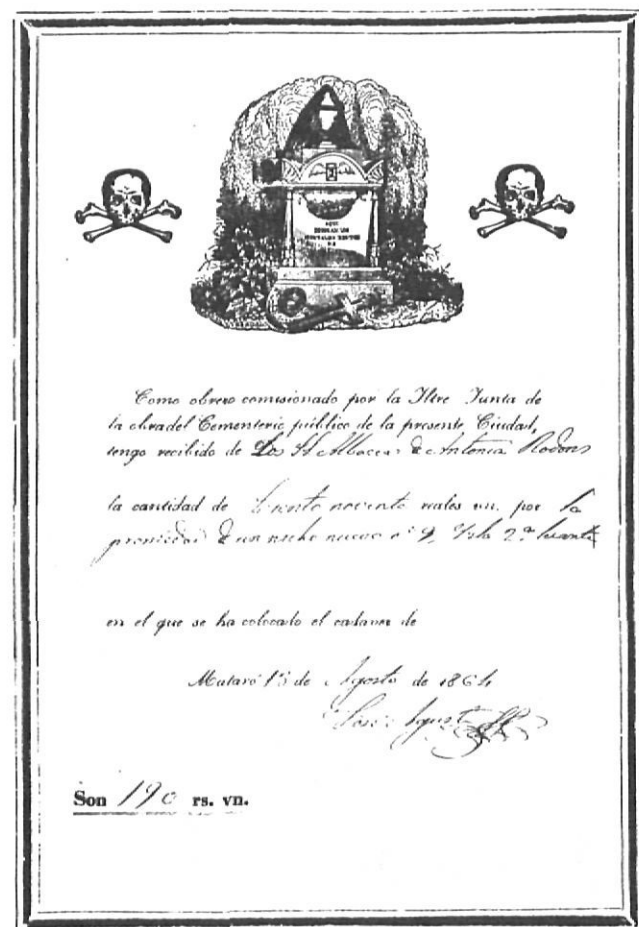 Como obrero comisionado por la Iltre Junta de
la obra del Cementerio público de la presente Ciudad,
tengo recibido de Los Sres Albaceas de Antonia Rodons
la cantidad de Ciento noventa reales vn. por la
propiedad de un nicho nuevo nº 9, Isla 2ª
en el que se ha colocado el cadaver de
Mataró 13 de Agosto de 1864
José Agust
Son 190 rs. vn.